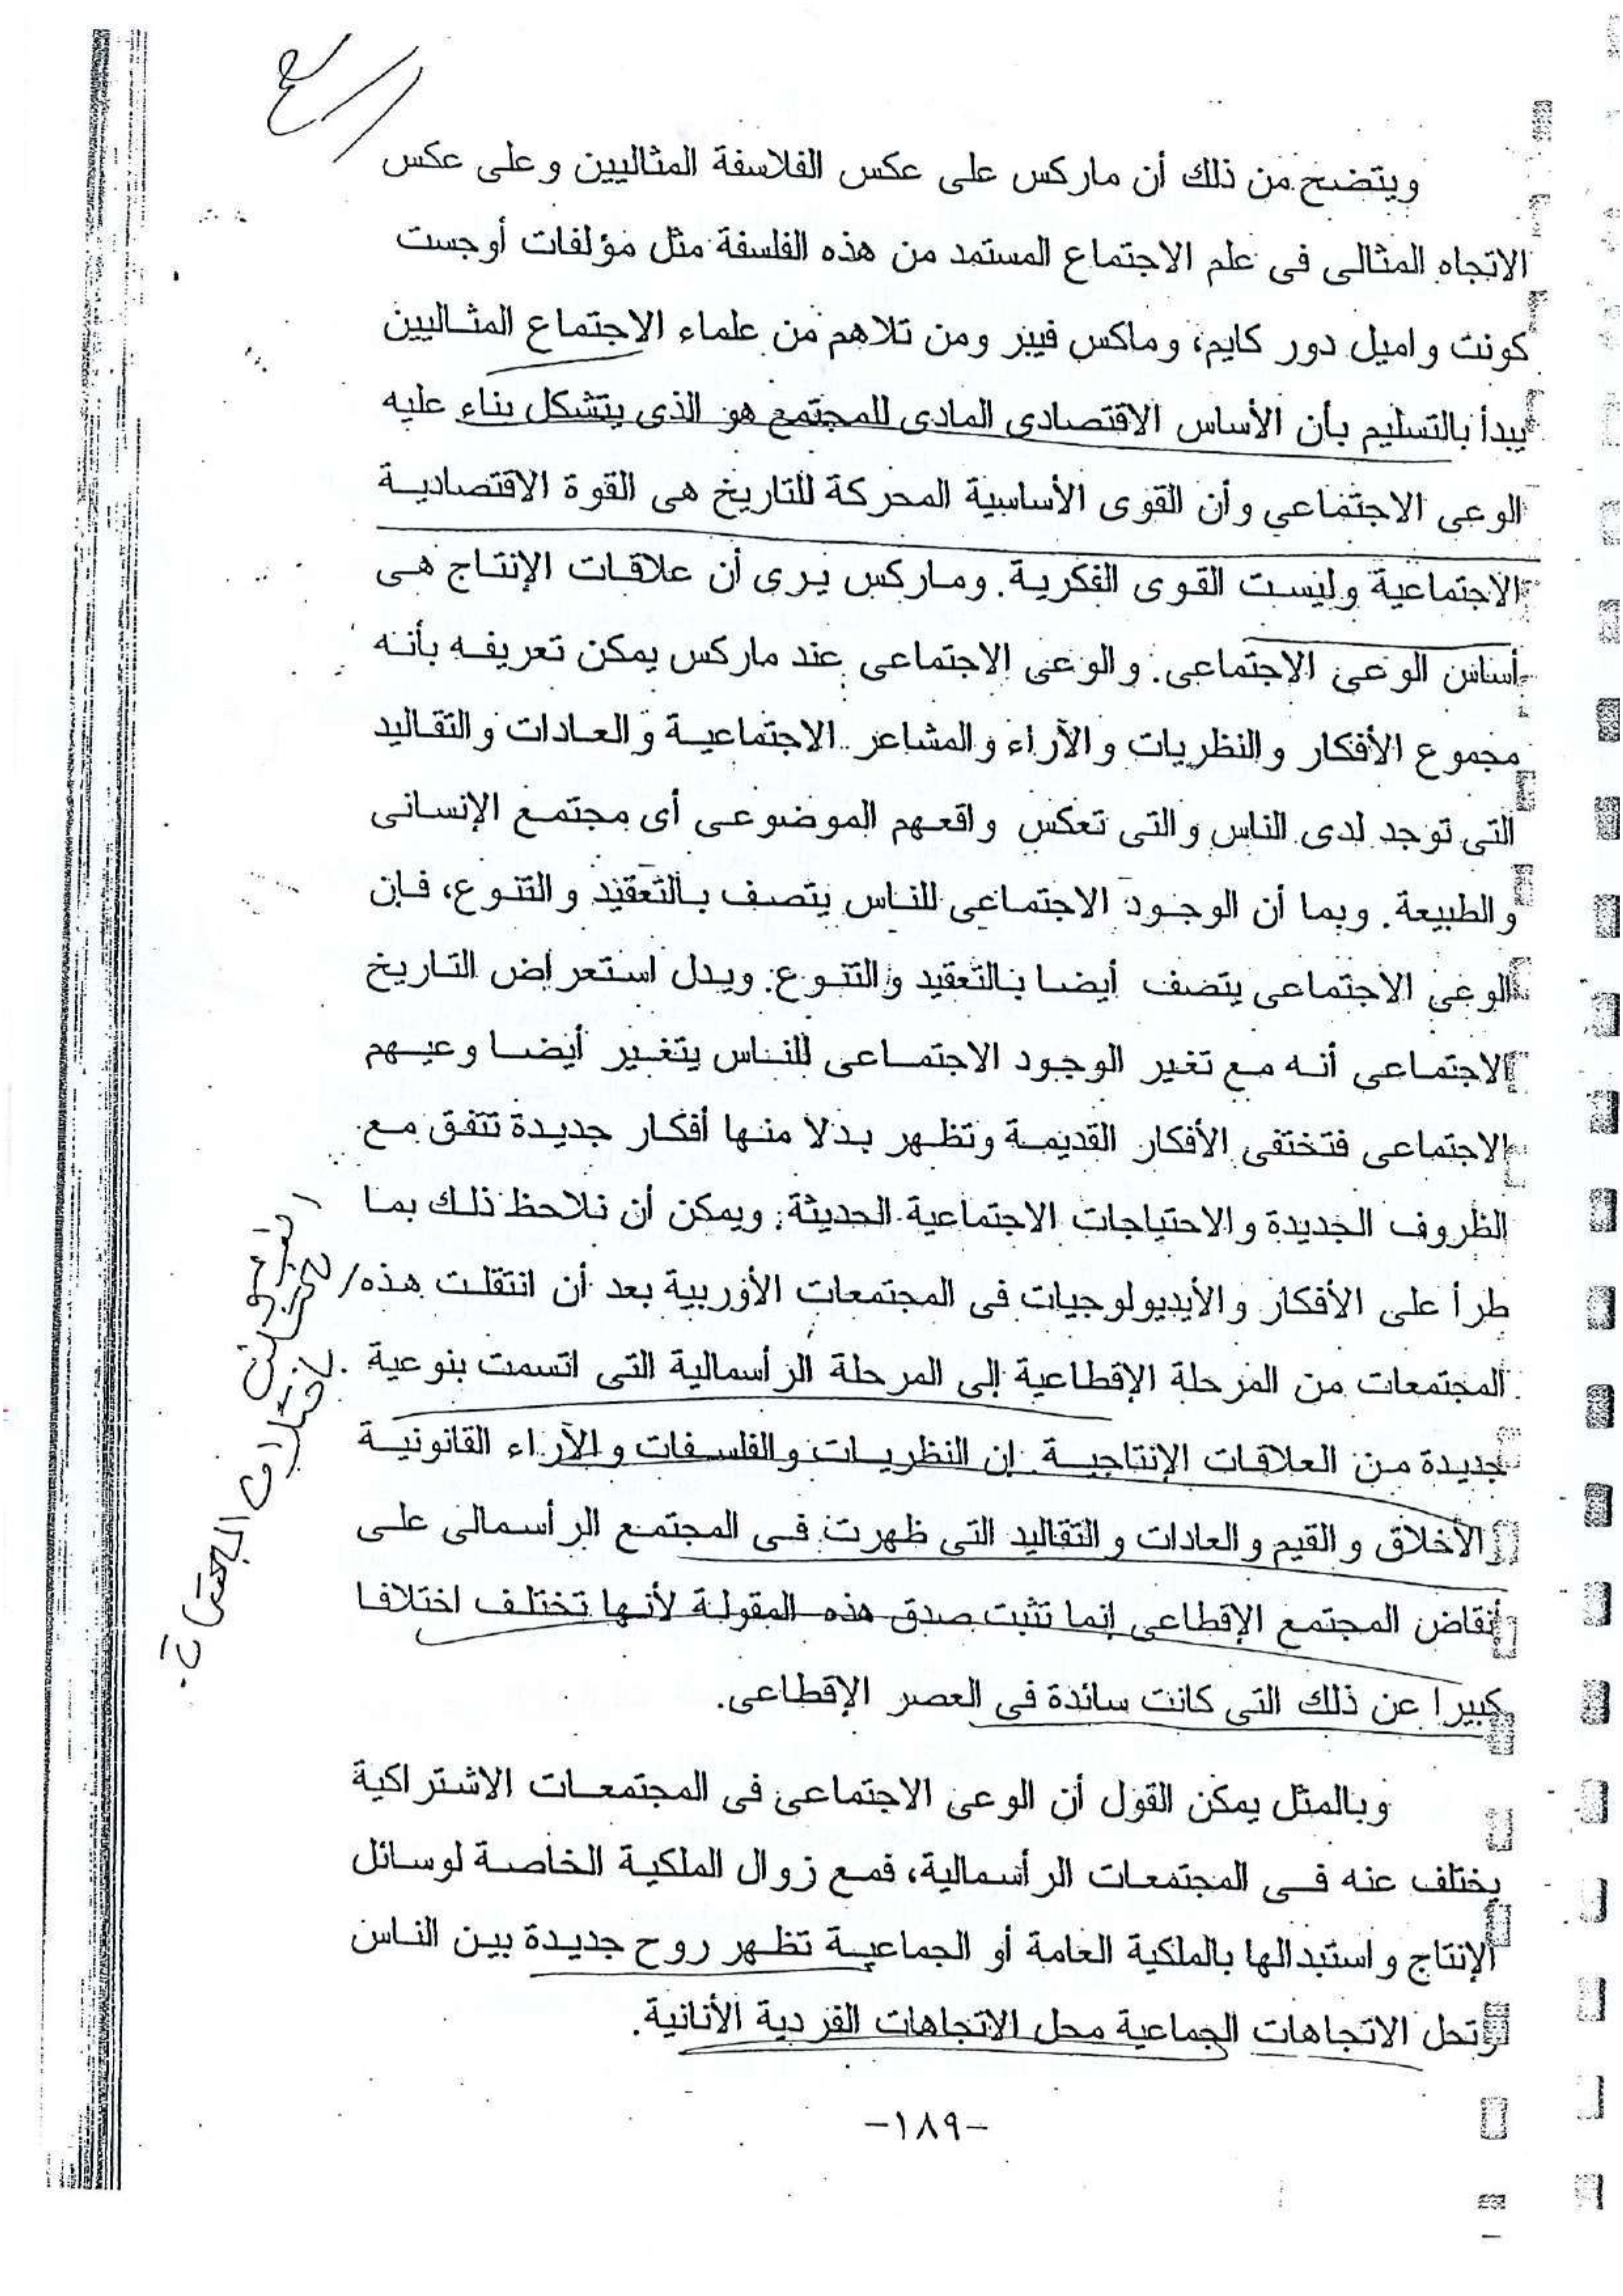 ويتضح من ذلك أن ماركس على عكس الفلاسفة المثاليين وعلى عكس
الاتجاه المثالى فى علم الاجتماع المستمد من هذه الفلسفة مثل مؤلفات أوجست
كونت واميل دور كايم، وماكس فيبر ومن تلاهم من علماء الاجتماع المثاليين
يبدأ بالتسليم بأن الأساس الاقتصادى المادى للمجتمع هو الذى يتشكل بناء عليه
الوعى الاجتماعي وأن القوى الأساسية المحركة للتاريخ هى القوة الاقتصادية
الاجتماعية وليست القوى الفكرية. وماركس يرى أن علاقات الإنتاج هى
أساس الوعى الاجتماعى. والوعى الاجتماعى عند ماركس يمكن تعريفه بأنه
مجموع الأفكار والنظريات والآراء والمشاعر الاجتماعية والعادات والتقاليد
التى توجد لدى الناس والتى تعكس واقعهم الموضوعى أى مجتمع الإنسانى
والطبيعة. وبما أن الوجود الاجتماعى للناس يتصف بالتعقيد والتنوع، فإن
الوعى الاجتماعى يتصف أيضا بالتعقيد والتنوع. ويدل استعراض التاريخ
الاجتماعى أنه مع تغير الوجود الاجتماعى للناس يتغير أيضا وعيهم
الاجتماعى فتختفى الأفكار القديمة وتظهر بدلا منها أفكار جديدة تتفق مع
الظروف الجديدة والاحتياجات الاجتماعية الحديثة. ويمكن أن نلاحظ ذلك بما
طرأ على الأفكار والأيديولوجيات فى المجتمعات الأوربية بعد أن انتقلت هذه
المجتمعات من المرحلة الإقطاعية إلى المرحلة الرأسمالية التى اتسمت بنوعية
جديدة من العلاقات الإنتاجية. إن النظريات والفلسفات والآراء القانونية
والأخلاق والقيم والعادات والتقاليد التى ظهرت فى المجتمع الرأسمالى على
أنقاض المجتمع الإقطاعى إنما تثبت صدق هذه المقولة لأنها تختلف اختلافا
كبيرا عن ذلك التى كانت سائدة فى العصر الإقطاعى.
وبالمثل يمكن القول أن الوعى الاجتماعى فى المجتمعات الاشتراكية
يختلف عنه فى المجتمعات الرأسمالية، فمع زوال الملكية الخاصة لوسائل
الإنتاج واستبدالها بالملكية العامة أو الجماعية تظهر روح جديدة بين الناس
وتحل الاتجاهات الجماعية محل الاتجاهات الفردية الأنانية.
-١٨٩-
اختلاف المجتمعات.